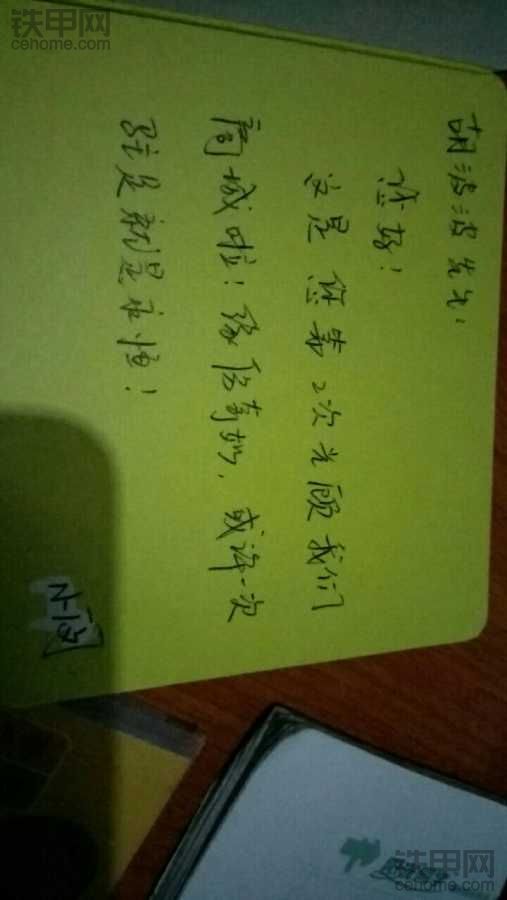 铁甲网
cehome.com
胡波波先生：
您好！
这是您第2次光顾我们
商城啦！缘份奇妙，或许一次
驻足就是永恒！
铁甲网
cehome.com